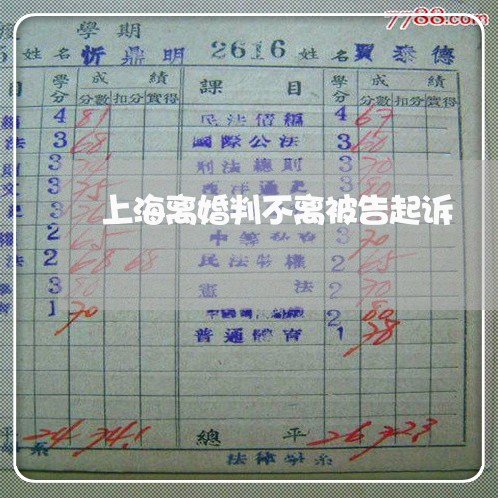 7788.com
學期
姓名 忻鼎明 2616 姓名 賈泰德
目 學分 成績 課目 學分 成績
分數 扣分 實得 分數 扣分 實得
4 81 民法債編 4 67
法 3 68 國際公法 3 60
3 刑法總則 3 70
3 75 西洋通史 3 80
上海离婚判不离被告起诉
2 65 3 70
法 2 68 68 民法物權 2 65
3 80 憲法 2 70
1 70 2 80
普通體育 1 78
平 24 74.1 總平 26 72.3
系 法律學系